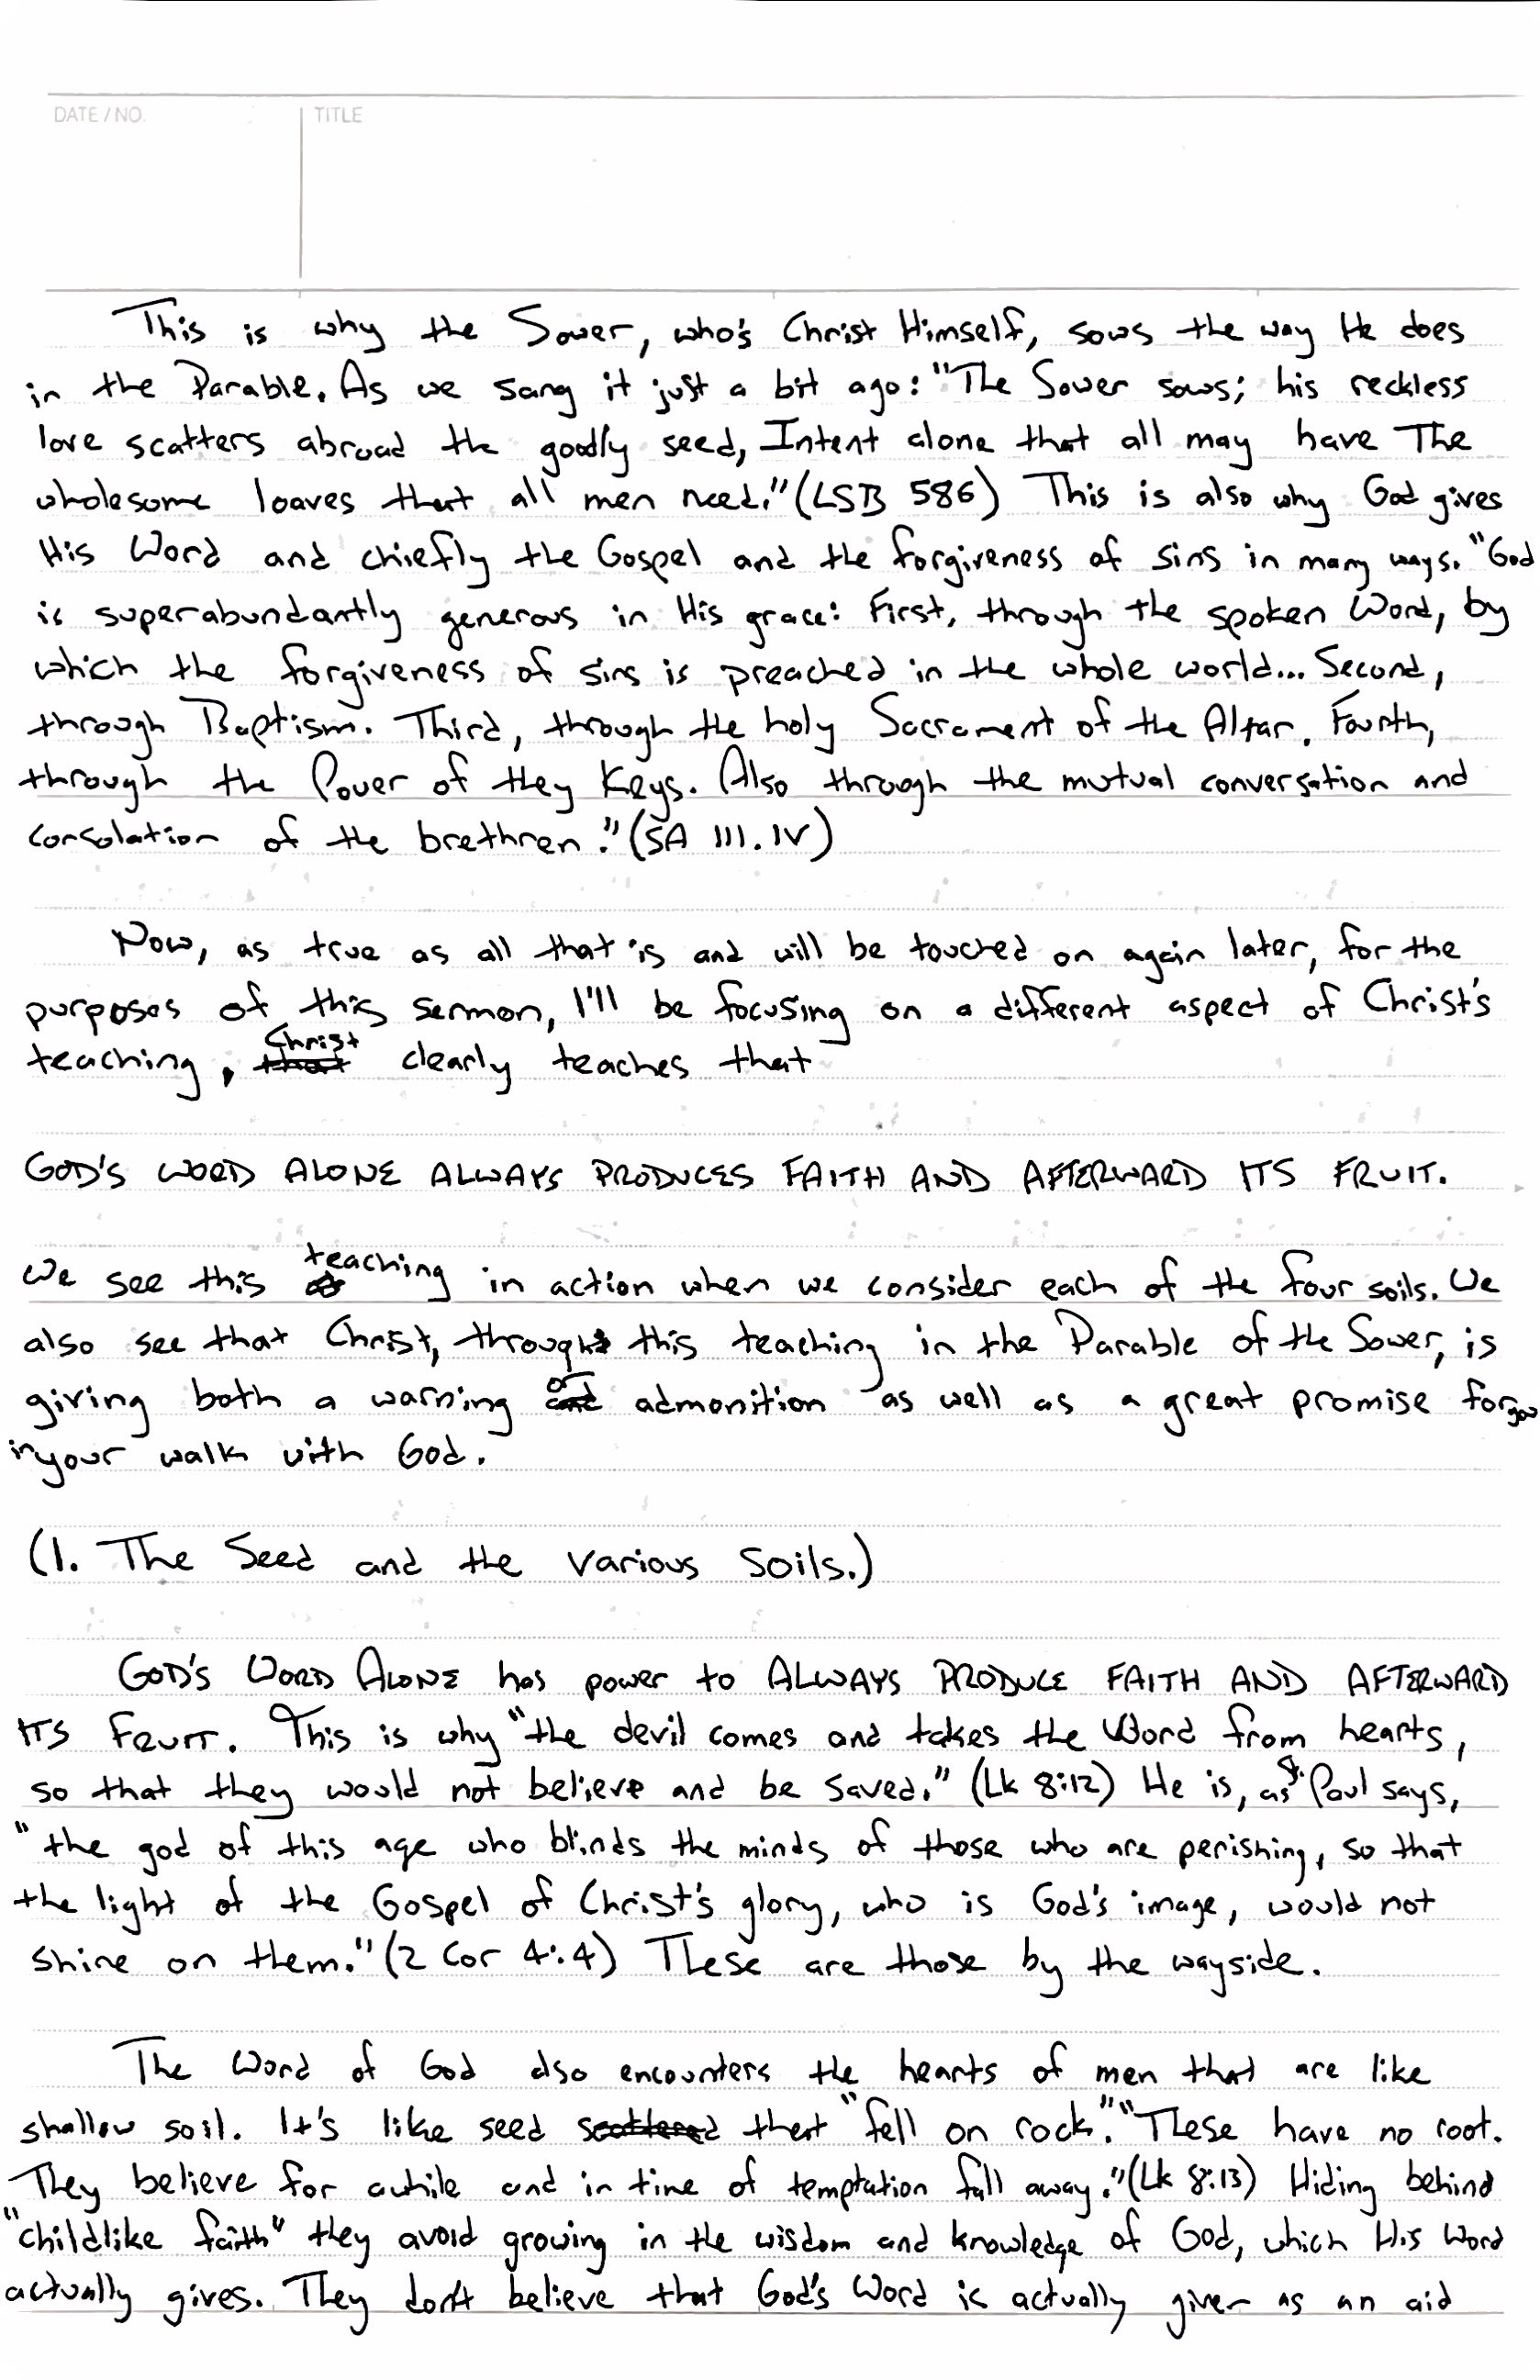 DATE / NO.
TITLE
This is why the Sower, who's Christ Himself, sows the way He does
in the Parable. As we sang it just a bit ago: "The Sower sows; his reckless
love scatters abroad the goodly seed, Intent alone that all may have The
wholesome loaves that all men need." (LSB 586) This is also why God gives
His Word and chiefly the Gospel and the forgiveness of sins in many ways. "God
is superabundantly generous in His grace: First, through the spoken Word, by
which the forgiveness of sins is preached in the whole world... Second,
through Baptism. Third, through the holy Sacrament of the Altar. Fourth,
through the Power of they Keys. Also through the mutual conversation and
consolation of the brethren." (SA III.IV)
Now, as true as all that is and will be touched on again later, for the
purposes of this sermon, I'll be focusing on a different aspect of Christ's
teaching, Christ clearly teaches that
GOD'S WORD ALONE ALWAYS PRODUCES FAITH AND AFTERWARD ITS FRUIT.
We see this teaching in action when we consider each of the four soils. We
also see that Christ, through this teaching in the Parable of the Sower, is
giving both a warning or admonition as well as a great promise for you
in your walk with God.
(1. The Seed and the various Soils.)
GOD'S WORD ALONE has power to ALWAYS PRODUCE FAITH AND AFTERWARD
ITS FRUIT. This is why "the devil comes and takes the Word from hearts,
so that they would not believe and be saved." (Lk 8:12) He is, as St. Paul says,
"the god of this age who blinds the minds of those who are perishing, so that
the light of the Gospel of Christ's glory, who is God's image, would not
shine on them." (2 Cor 4:4) These are those by the wayside.
The Word of God also encounters the hearts of men that are like
shallow soil. It's like seed scattered that "fell on rock." "These have no root.
They believe for awhile and in time of temptation fall away." (Lk 8:13) Hiding behind
"childlike faith" they avoid growing in the wisdom and knowledge of God, which His Word
actually gives. They don't believe that God's Word is actually given as an aid